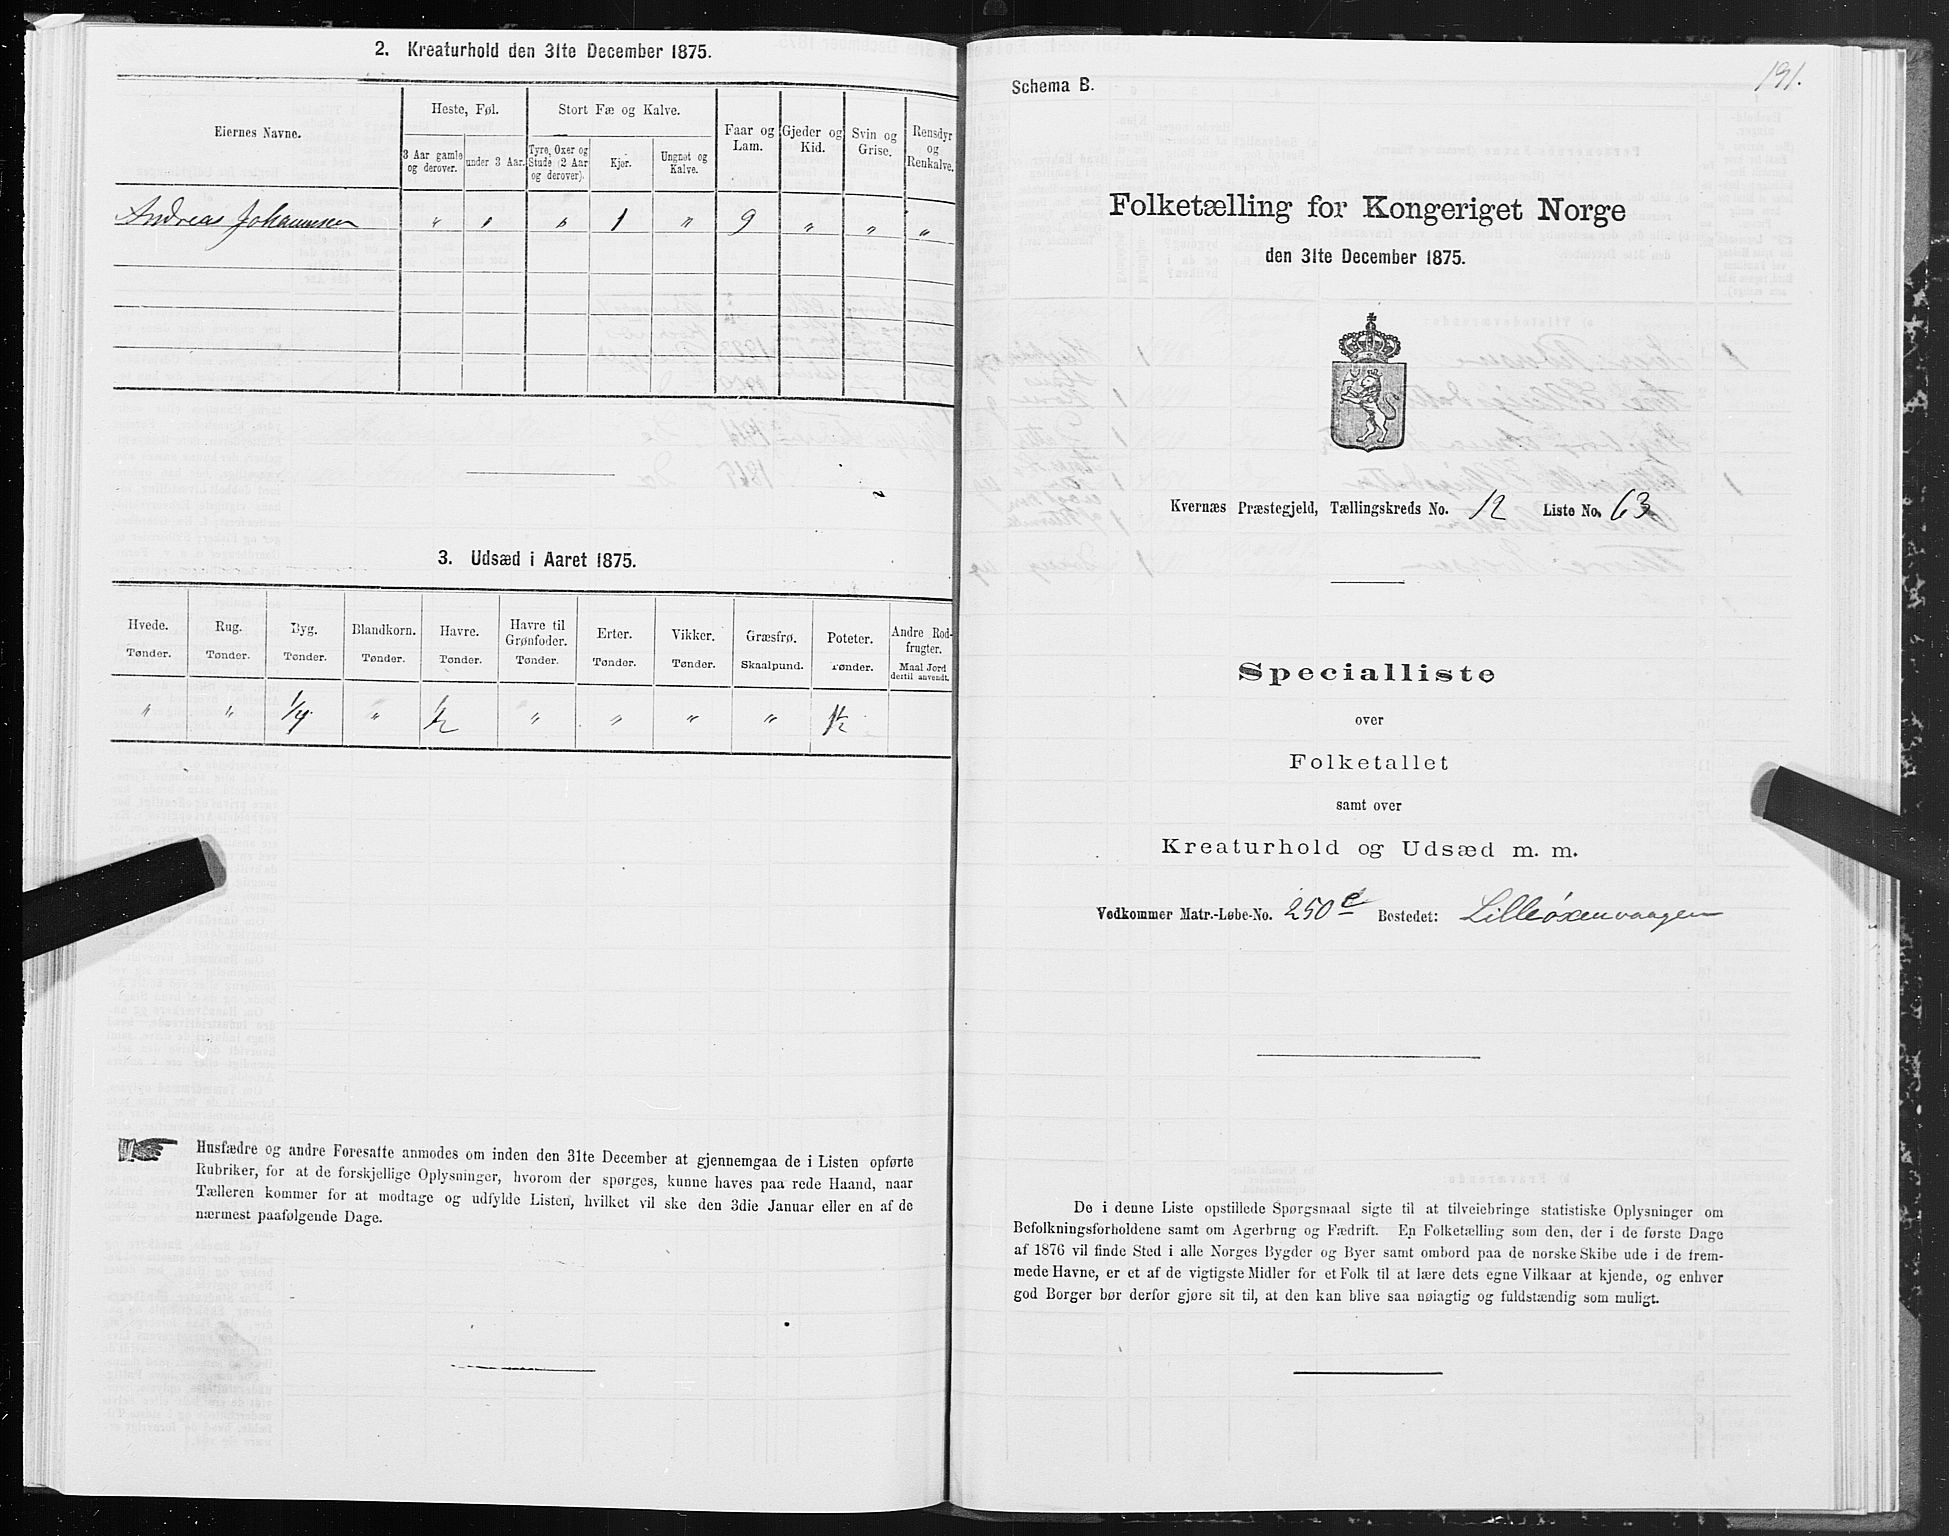 2. Kreaturhold den 31te December 1875.
Eiernes Navne.
Heste, Føl.
Stort Fæ og Kalve.
Faar og Lam.
Gjeder og Kid.
Svin og Grise.
Rensdyr og Renkalve.
3 Aar gamle og derover.
under 3 Aar.
Tyre, Oxer og Stude (2 Aar og derover).
Kjør.
Ungnøt og Kalve.
Andreas Johannesen " " " 1 " 9 " " "
3. Udsæd i Aaret 1875.
Hvede. Rug. Byg. Blandkorn. Havre. Havre til Grønfoder. Erter. Vikker. Græsfrø. Poteter. Andre Rodfrugter.
Tønder. Tønder. Tønder. Tønder. Tønder. Tønder. Tønder. Tønder. Skaalpund. Tønder. Maal Jord dertil anvendt.
" " 1/4 " 1/2 " " " " 1 1/2
Husfædre og andre Foresatte anmodes om inden den 31te December at gjennemgaa de i Listen opførte
Rubriker, for at de forskjellige Oplysninger, hvorom der spørges, kunne haves paa rede Haand, naar
Tælleren kommer for at modtage og udfylde Listen, hvilket vil ske den 3die Januar eller en af de
nærmest paafølgende Dage.
191.
Schema B.
Folketælling for Kongeriget Norge
den 31te December 1875.
Kvernæs Præstegjeld, Tællingskreds No. 12 Liste No. 63
Specialliste
over
Folketallet
samt over
Kreaturhold og Udsæd m. m.
Vedkommer Matr.-Løbe-No. 250e Bostedet: Lilleøxenvaagen
De i denne Liste opstillede Spørgsmaal sigte til at tilveiebringe statistiske Oplysninger om
Befolkningsforholdene samt om Agerbrug og Fædrift. En Folketælling som den, der i de første Dage
af 1876 vil finde Sted i alle Norges Bygder og Byer samt ombord paa de norske Skibe ude i de frem-
mede Havne, er et af de vigtigste Midler for et Folk til at lære dets egne Vilkaar at kjende, og enhver
god Borger bør derfor gjøre sit til, at den kan blive saa nøiagtig og fuldstændig som muligt.